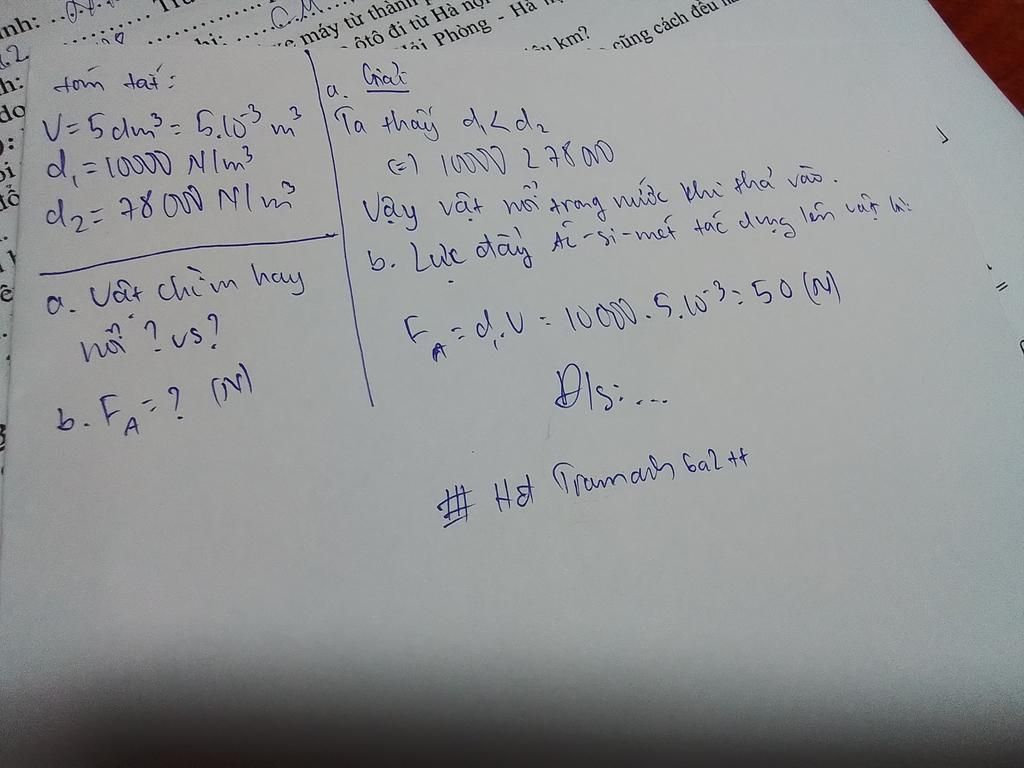 tóm tắt:
V = 5dm³ = 5.10⁻³ m³
d₁ = 10000 N/m³
d₂ = 78000 N/m³
a. Vật chìm hay
nổi? vs?
b. F_A = ? (N)
a. Giải:
Ta thấy d₁ < d₂
(=) 10000 < 78000
Vậy vật nổi trong nước khi thả vào.
b. Lực đẩy Ác-si-mét tác dụng lên vật là:
F_A = d₁.V = 10000.5.10⁻³ = 50 (N)
Đ/s:...
# Hết
máy từ thành
ôtô đi từ Hà nội
Hải Phòng - Hà
km?
cũng cách đều